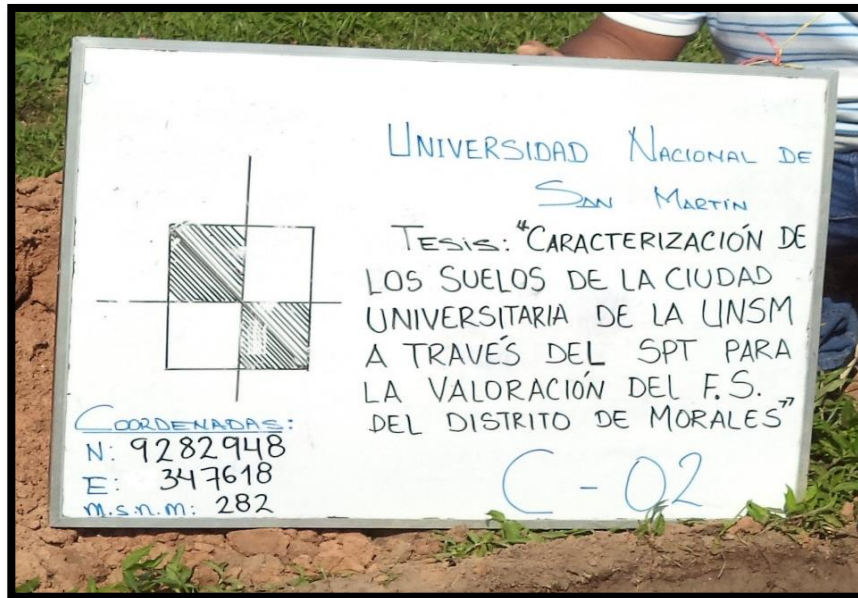 UNIVERSIDAD NACIONAL DE
SAN MARTIN
TESIS: "CARACTERIZACIÓN DE
LOS SUELOS DE LA CIUDAD
UNIVERSITARIA DE LA UNSM
A TRAVÉS DEL SPT PARA
LA VALORACIÓN DEL F.S.
DEL DISTRITO DE MORALES"
COORDENADAS:
N: 9282948
E: 347618
m.s.n.m: 282
C - 02